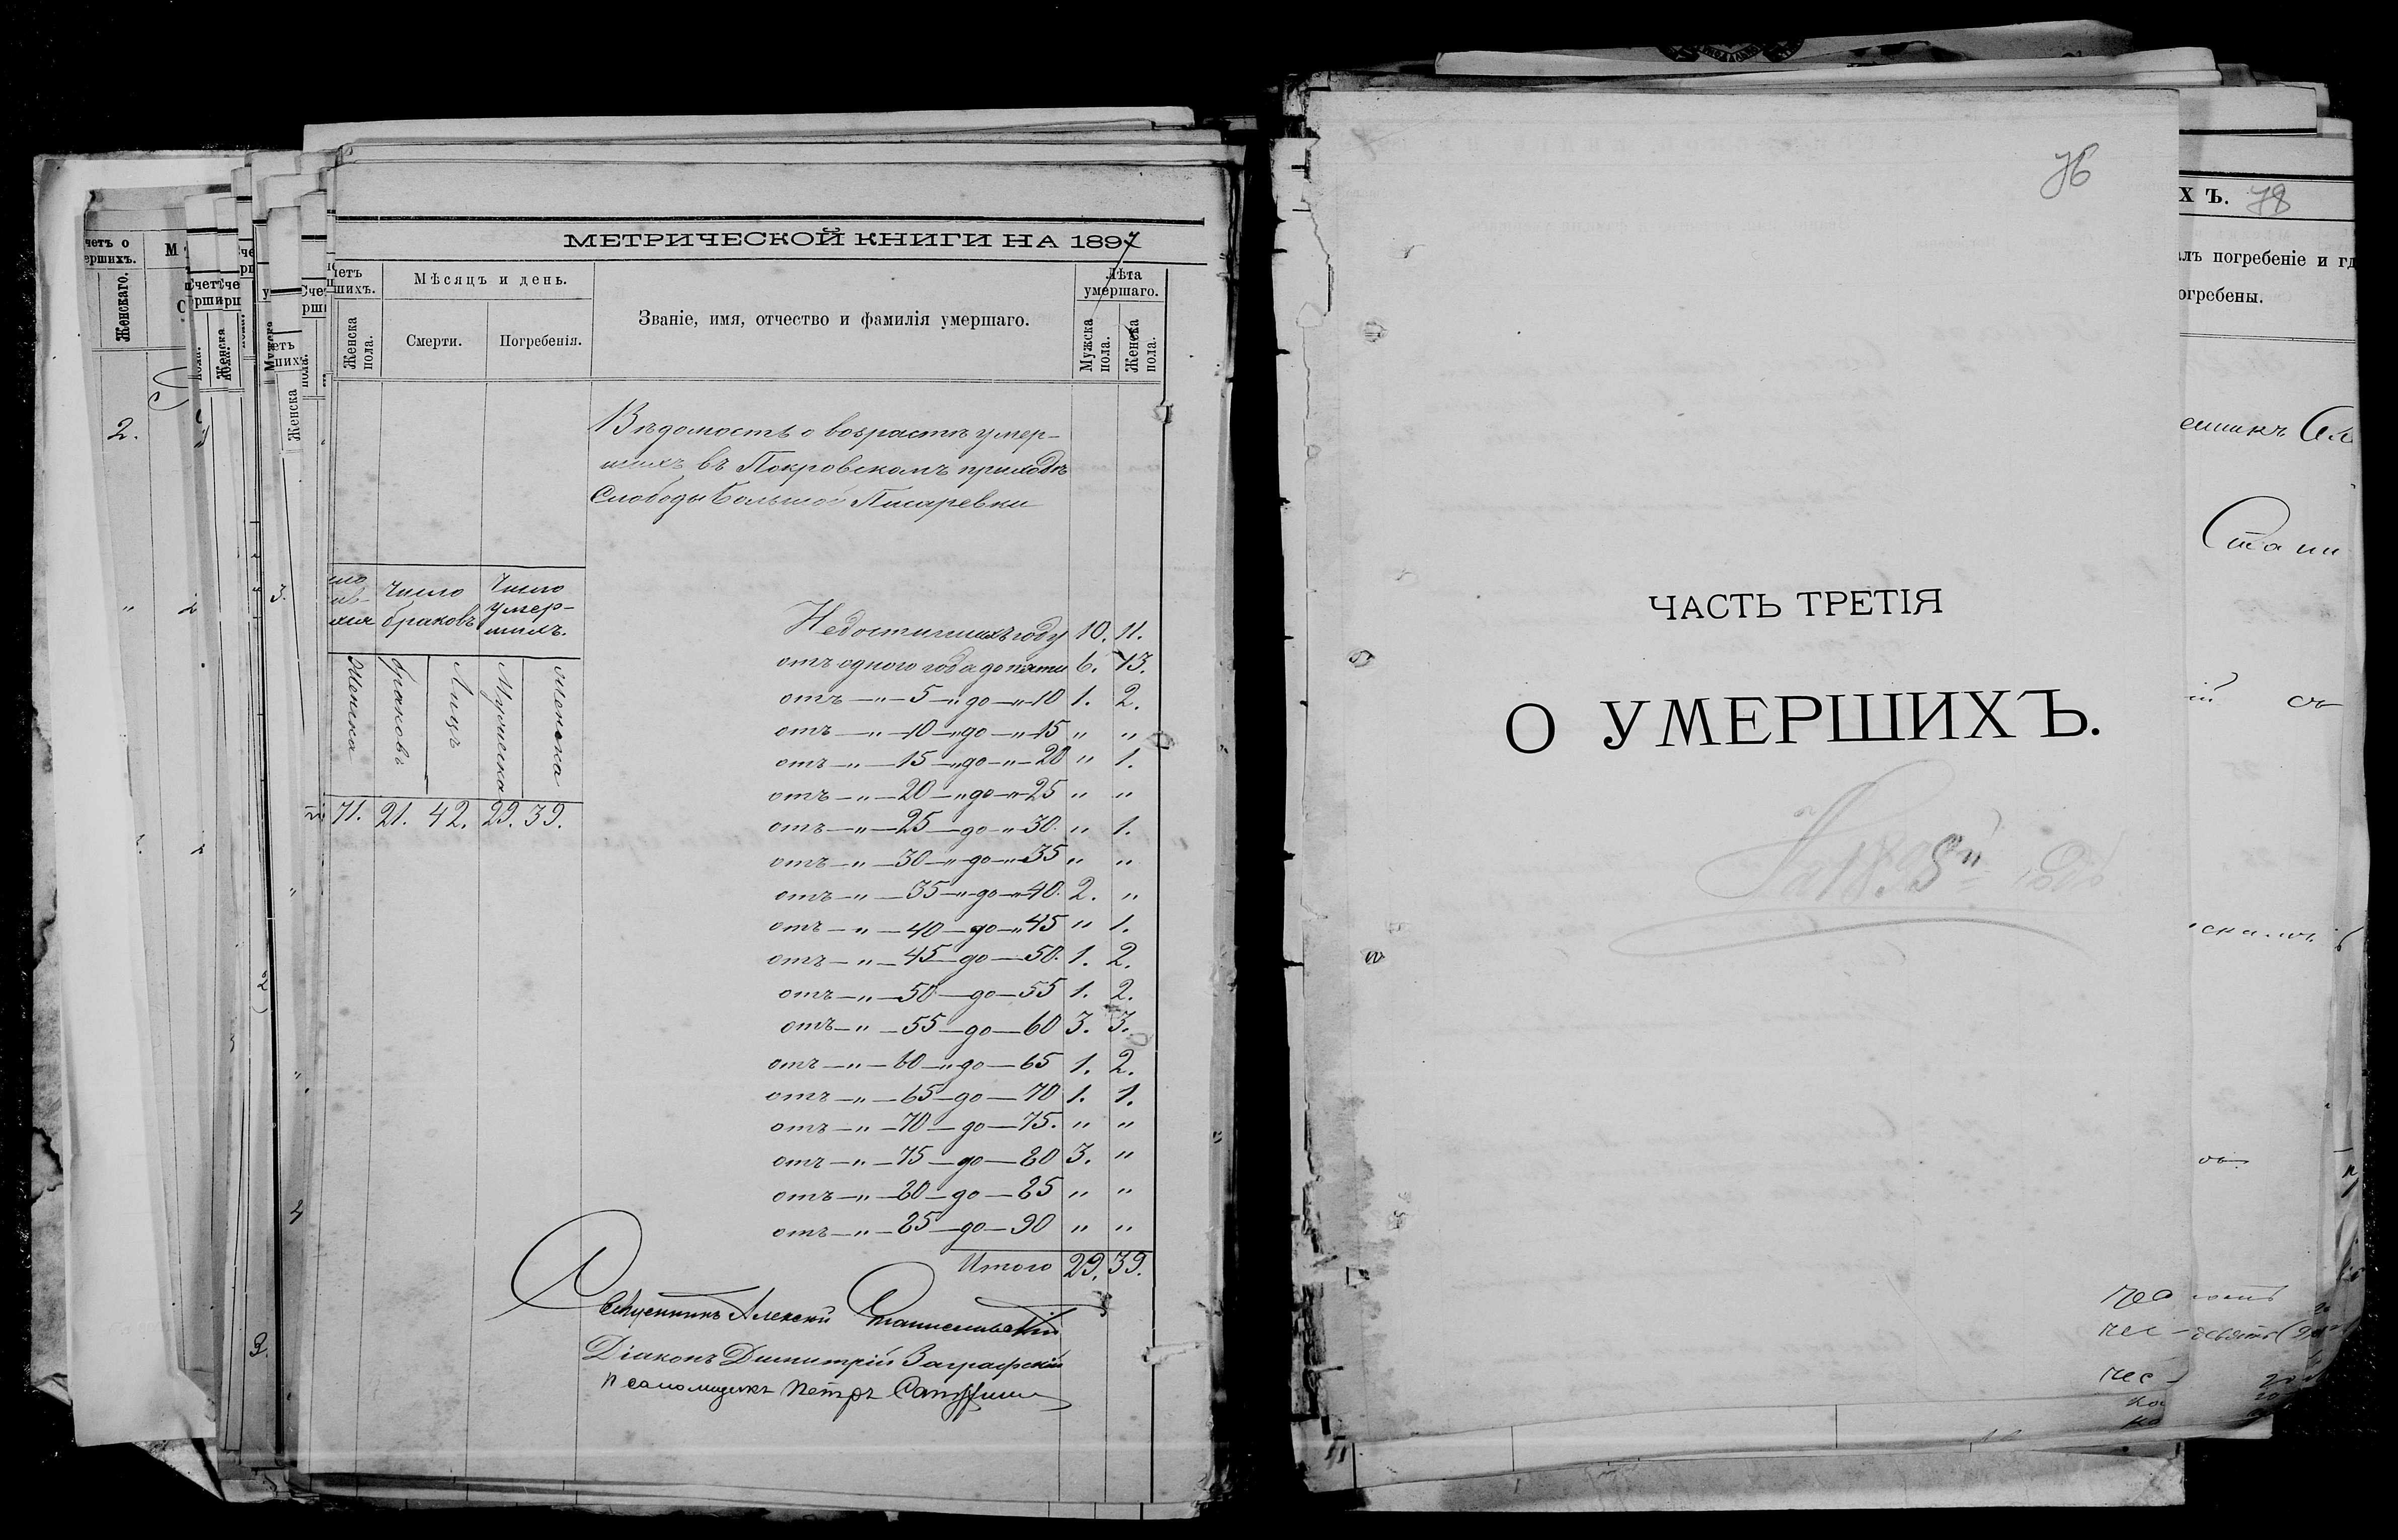 МЕТРИЧЕСКОЙ КНИГИ НА 1897
Мѣсяцъ и день.
Смерти.
Погребенія.
Женска пола.
Званіе, имя, отчество и фамилія умершаго.
Лѣта умершаго.
Мужска пола.
Женска пола.
Вѣдомость о возрастѣ умер-
шихъ въ Покровскомъ приходѣ
Слободы Большой Писаревки
Число браковъ
Число умер-шихъ.
Женска
браковъ
Лицъ
Мужеска
Женска
71. 21. 42. 29. 39.
Недостигшихъ году 10. 11.
отъ одного года до пяти 6. 13.
отъ — „ — 5 — „ до — „ — 10 1. 2.
отъ — „ — 10 — „ до — „ 15 „ „
отъ — „ — 15 — „ до — „ — 20 „ 1.
отъ — „ — 20 — „ до — „ 25 „ „
отъ — „ — 25 — до — „ 30. „ 1.
отъ — „ — 30 — „ до — „ 35 „ „
отъ — „ — 35 — „ до — „ 40. 2. „
отъ — „ — 40 — до — „ 45 „ 1.
отъ — „ — 45 — до — 50. 1. 2.
отъ — „ — 50 — до — 55 1. 2.
отъ — „ — 55 — до — 60 3. 3.
отъ — „ — 60 — „ до — 65 1. 2.
отъ — „ — 65 — до — 70 1. 1.
отъ — „ — 70 — до — 75. „ „
отъ — „ — 75 — до — 80 3. „
отъ — „ — 80 — до — 85 „ „
отъ — „ — 85 — до — 90 „ „
Итого 29. 39.
Священникъ Алексий Станиславскій
Діаконъ Димитрій Заграфскій
Псаломщикъ Петръ
76
ЧАСТЬ ТРЕТІЯ
О УМЕРШИХЪ.
На 1898й годъ
ХЪ. 78
погребеніе и гд
огребены.